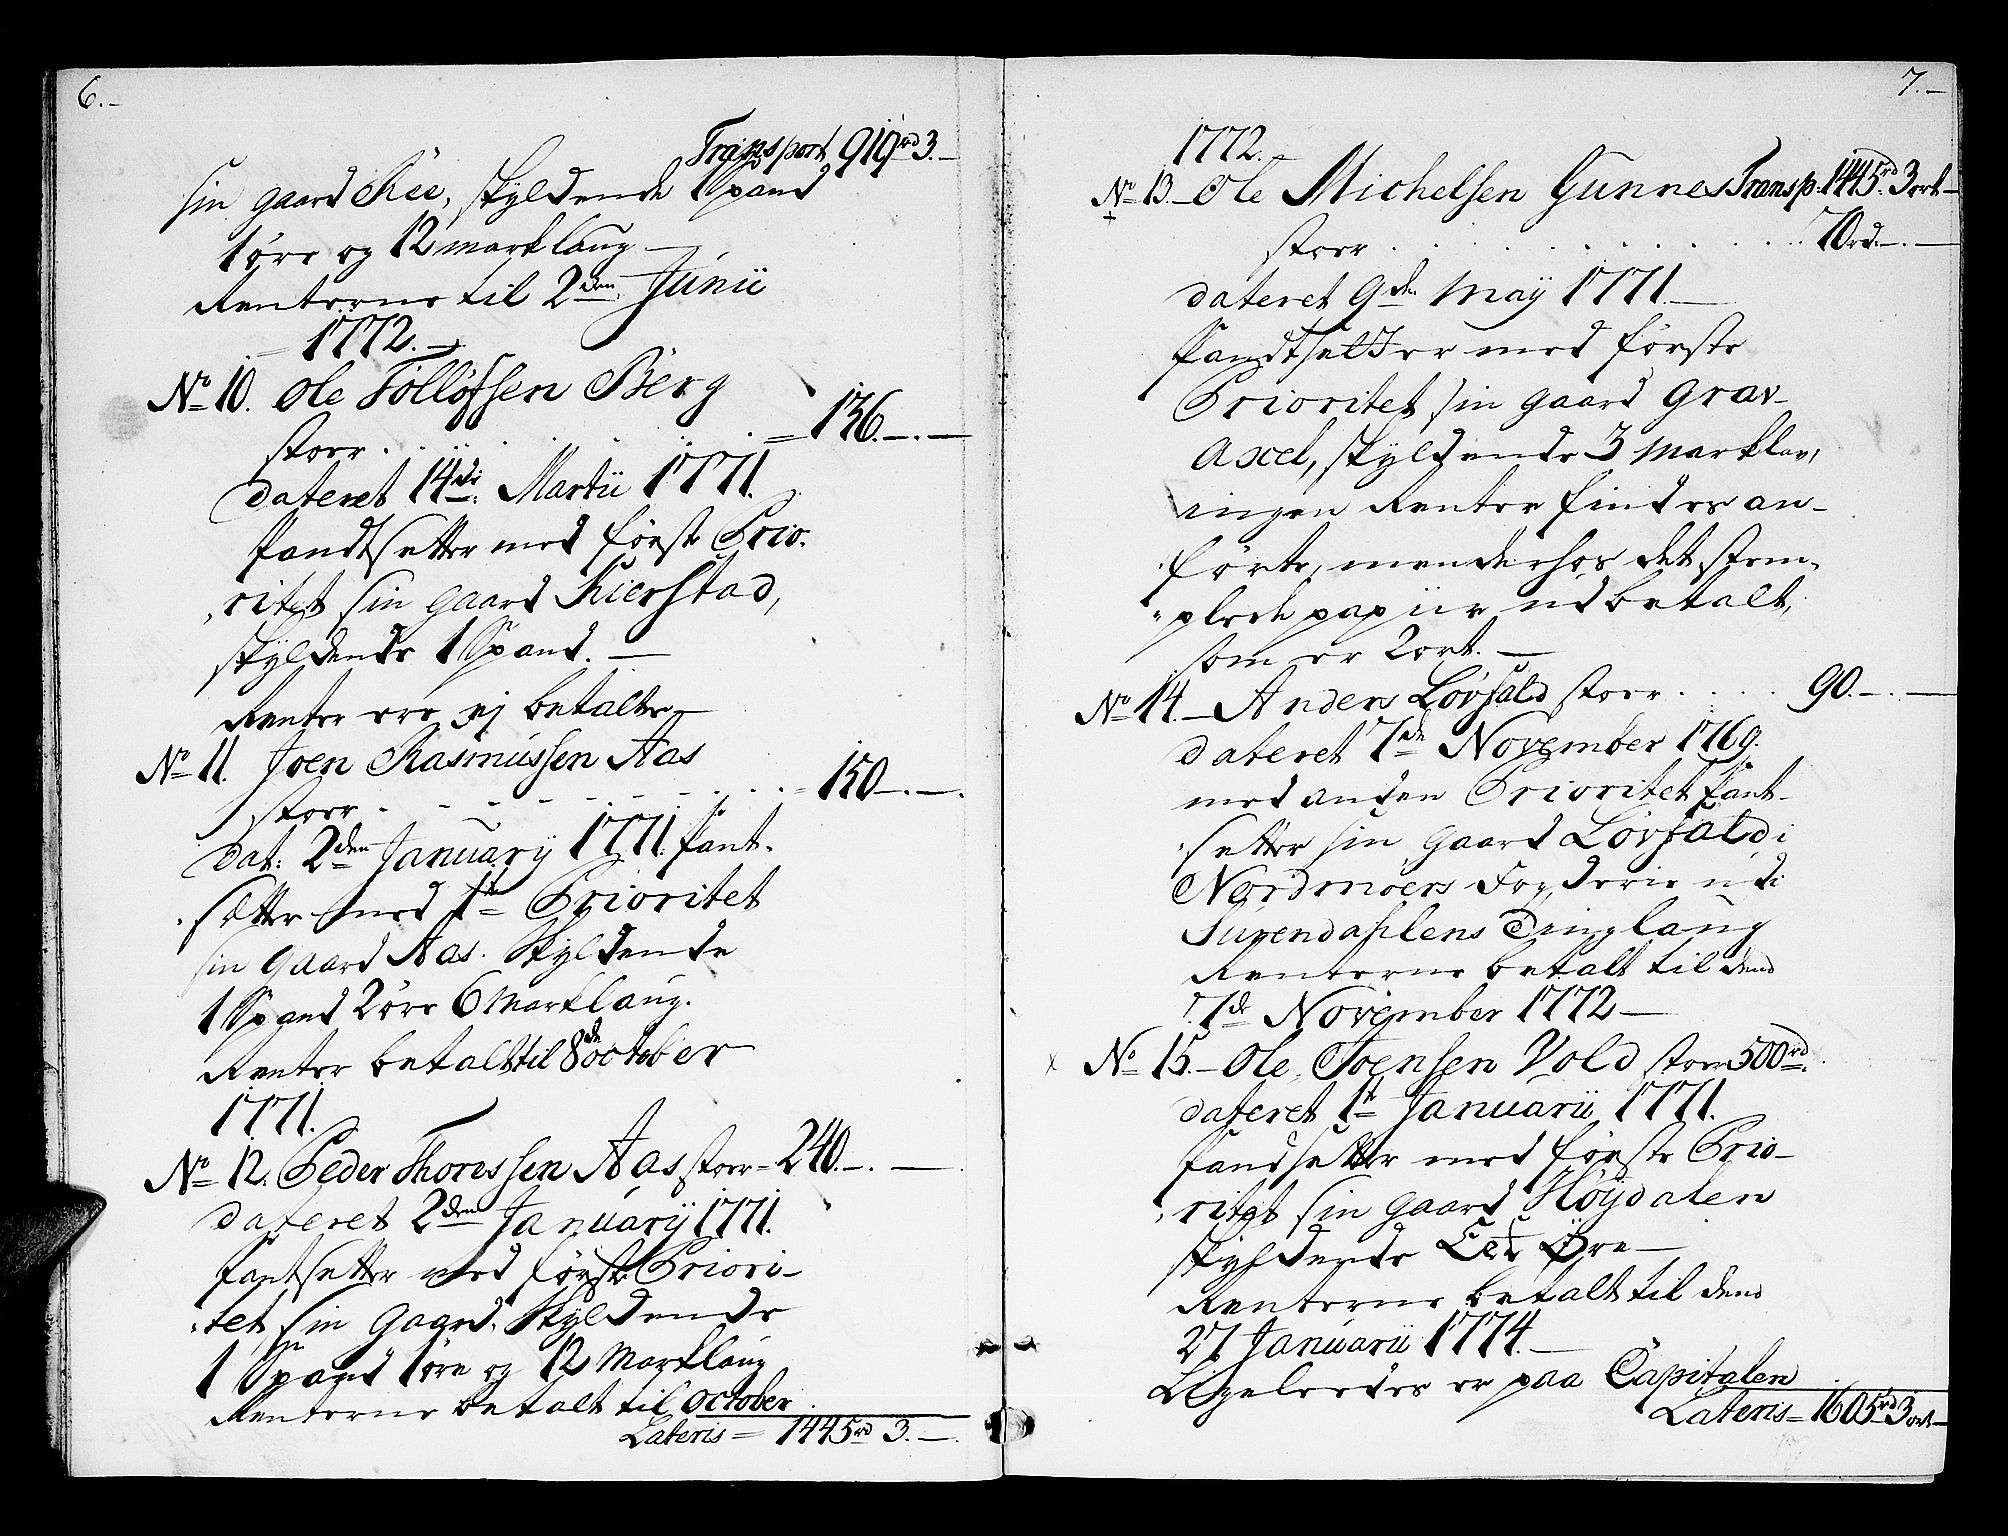 6.-
Transport 919rd 3.-
sin gaard Rëe, skyldende 1 Spand
1 öre og 12 marklaug -
Renterne til 2den Junii
1772.-
No 10. Ole Tolløfsen Berg
stoer . . . . . . . = 136.-.-
dateret 14de Martii 1771.
Pandtsetter med første Prio-
ritet sin gaard Kierstad,
skyldende 1 Spand. -
Renter ere ej betalte -
No 11. Joen Rasmussen Aas
stoer . - - - - - - . . = 150-.-.
Dat: 2den January 1771. Pant-
sætter med 1te Prioritet
sin gaard Aas. Skyldende
1 Spand 2 öre 6 Marklaug.
Renter betalt til 8de october
1771.
No 12. Peder Thoressen Aas stoer = 240.-.-
dateret 2den January 1771.
Pantsetter med første Priori-
tet sin Gaard, Skyldende
1 Spand 1 öre og 12 Marklaug
Renterne betalt til october
Lateris = 1445rd 3.-.
7.-
1772.-
No 13.- Ole Michelsen Gunnes Transp. 1445rd 3 ort-
stoer . . . . . . . . . . . 70rd.-.-
dateret 9de May 1771.-
Pandtsetter med første
Prioritet sin gaard Grav-
axel, skyldende 3 Marklau,
ingen Renter findes an-
förte, men derhos det stem-
plede papiir udbetalt,
som er 2 ort. -
No 14.- Anders Lövfald stoer . . . . 90.-.-
dateret 7de November 1769.
med anden Prioritet Pant-
setter sin gaard Lövfald i
Nordmoers Fogderie udi
Surendahlens Dinglaug
Renterne betalt til dend
7de November 1772-
No 15.- Ole Joensen Vold stoer 500rd.
dateret 1te Januarii 1771.
Pandsetter med første Prio-
ritet sin gaard Høydalen
skyldende Öre -
Renterne betalt til dend
27 Januarii 1774.-
Ligeleedes er paa Capitalen
Lateris = 1605rd 3 ort-